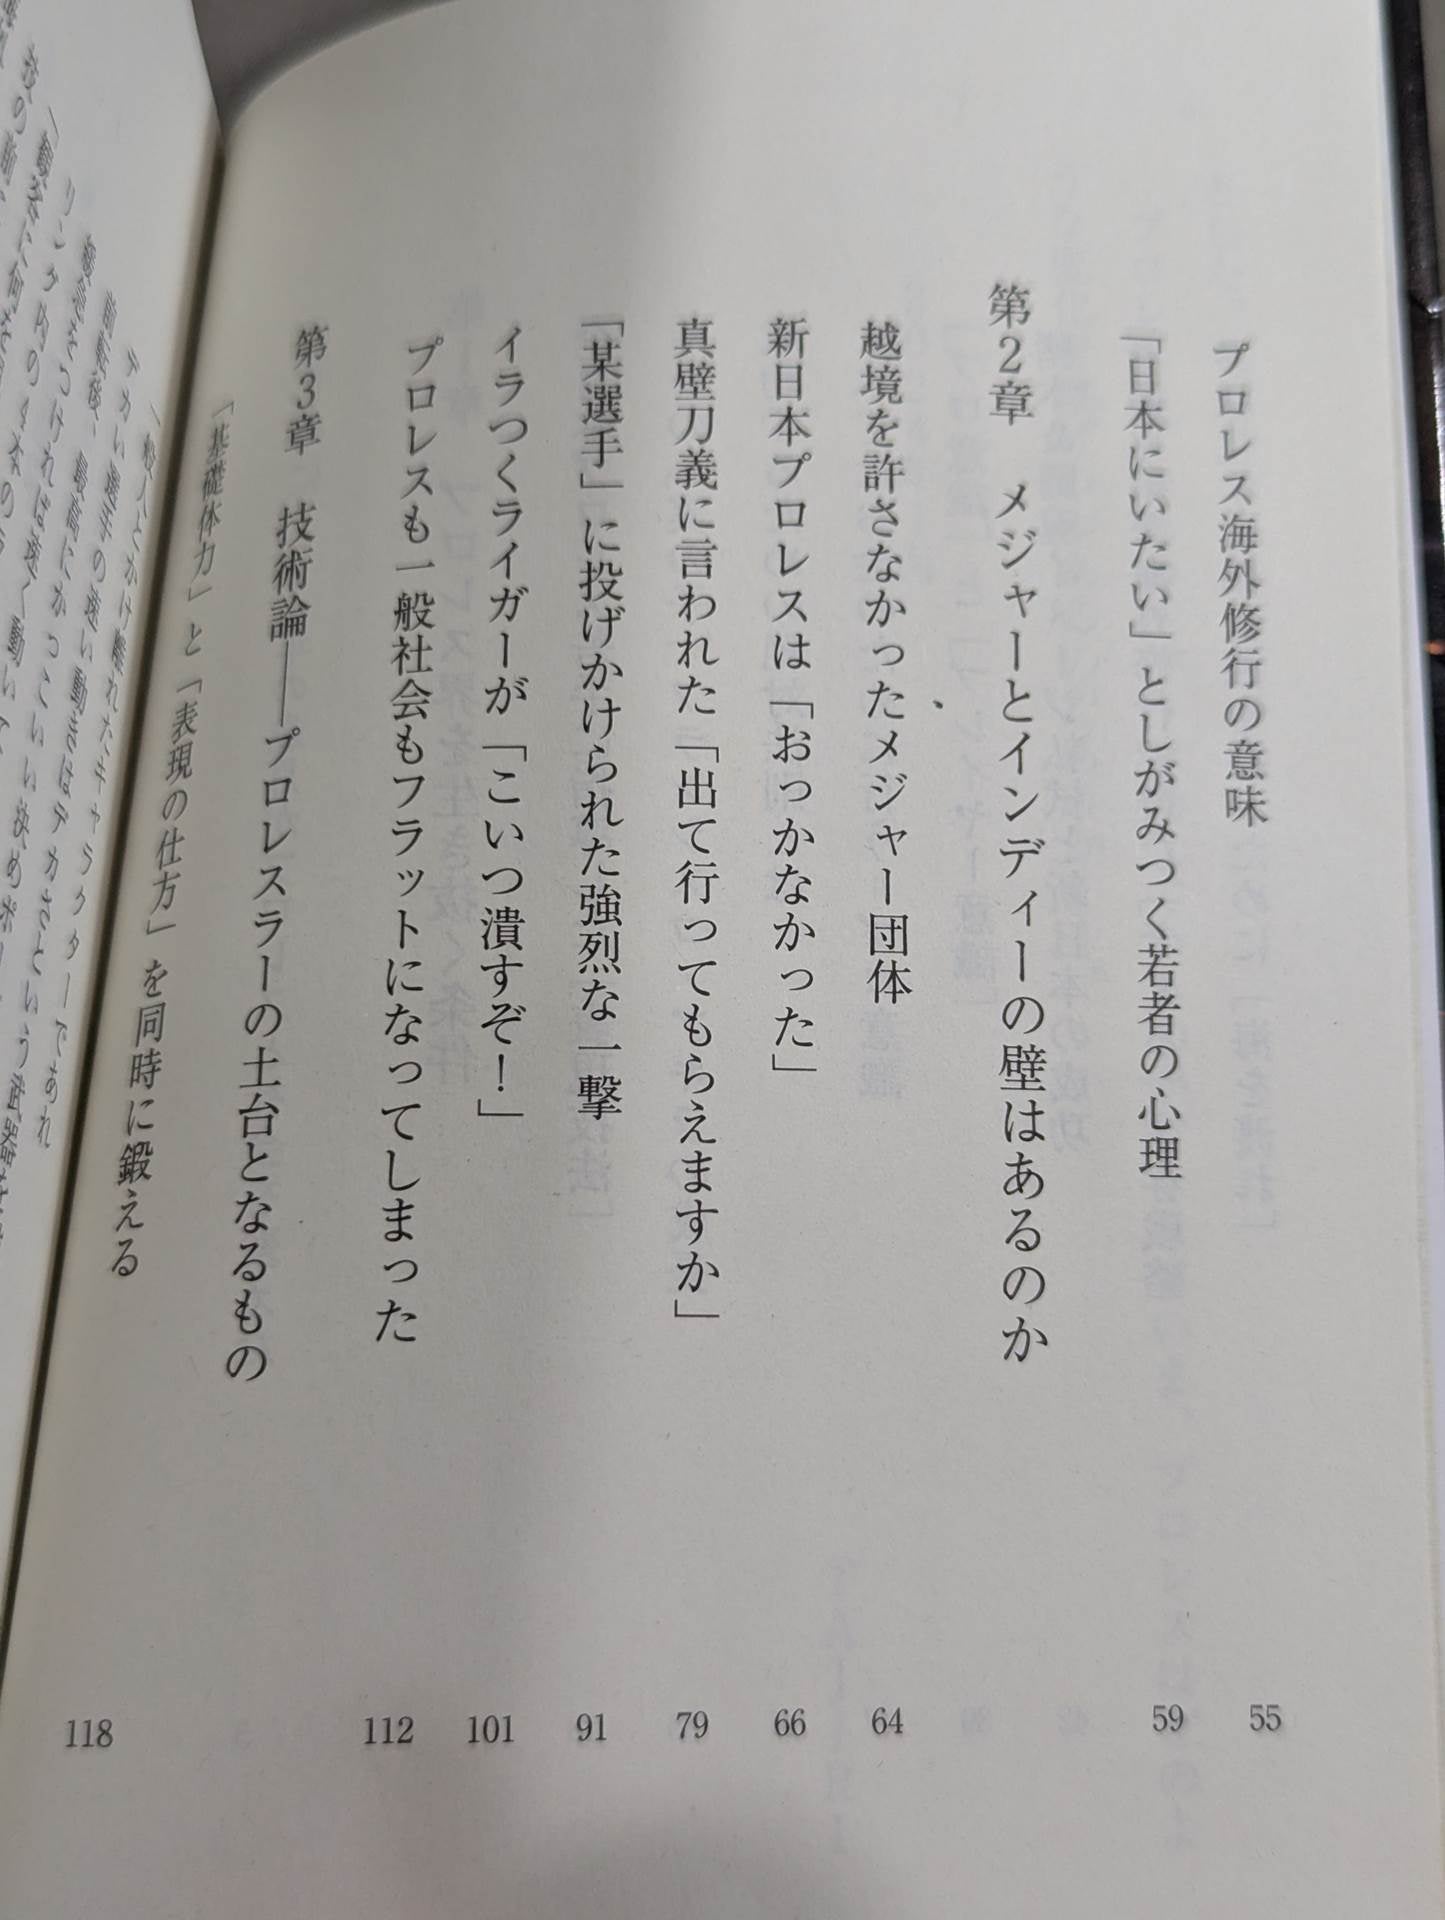 プロレス海外修行の意味 55
「日本にいたい」としがみつく若者の心理 59
第2章 メジャーとインディーの壁はあるのか
越境を許さなかったメジャー団体 64
新日本プロレスは「おっかなかった」 66
真壁刀義に言われた「出て行ってもらえますか」 79
「某選手」に投げかけられた強烈な一撃 91
イラつくライガーが「こいつ潰すぞ!」 101
プロレスも一般社会もフラットになってしまった 112
第3章 技術論――プロレスラーの土台となるもの
「基礎体力」と「表現の仕方」を同時に鍛える 118
デカい選手の速い動きはデカさという武器
緩急をつければ速く動いて